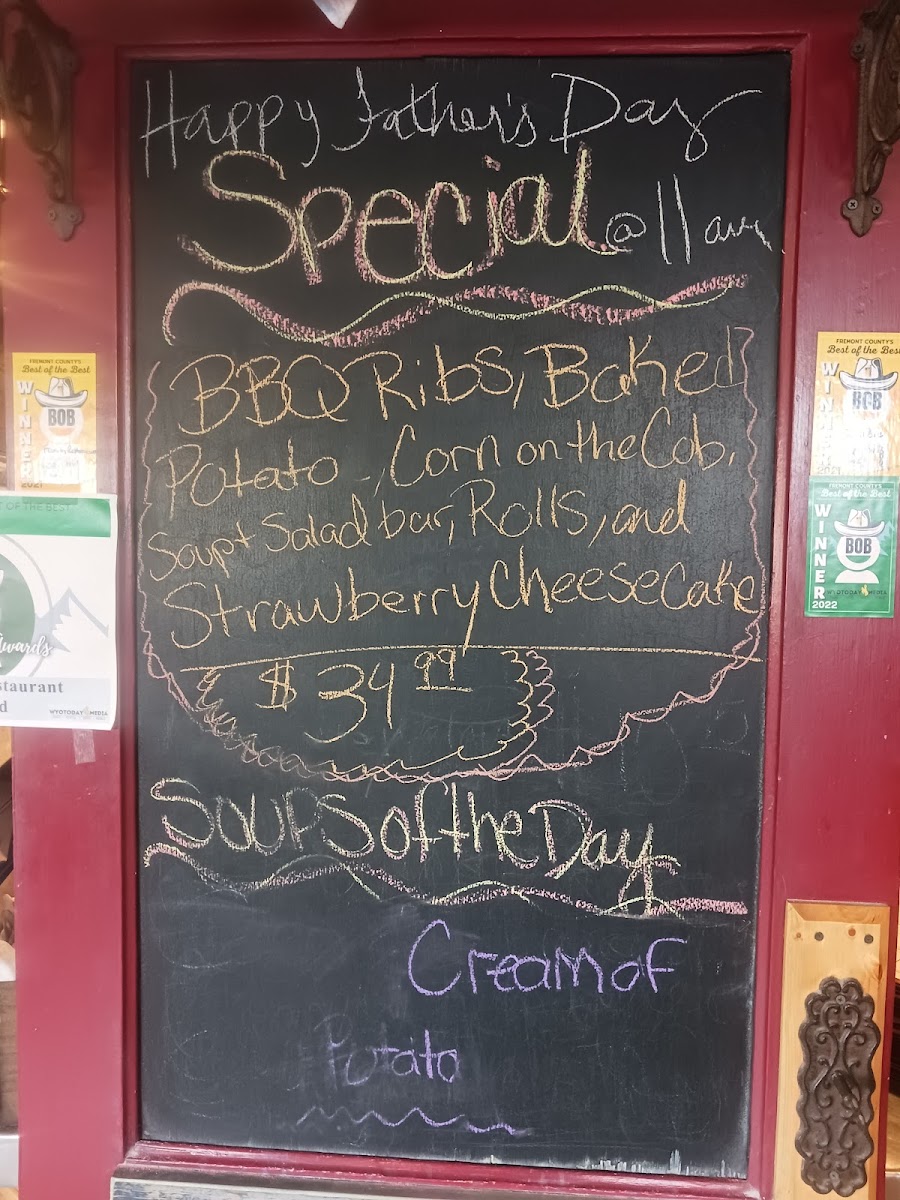 Happy Father's Day
Special @ 11 am
BBQ Ribs, Baked
Potato, Corn on the Cob,
Soup + Salad bar, Rolls, and
Strawberry CheeseCake
$34.99
Soups of the Day
Cream of
Potato
FREMONT COUNTY'S
Best of the Best
WINNER
BOB
2021
OF THE BEST
Awards
staurant
d
WYOTODAY MEDIA
FREMONT COUNTY'S
Best of the Best
WINNER
BOB
2021
FREMONT COUNTY'S
Best of the Best
WINNER
BOB
WYOTODAY MEDIA
2022